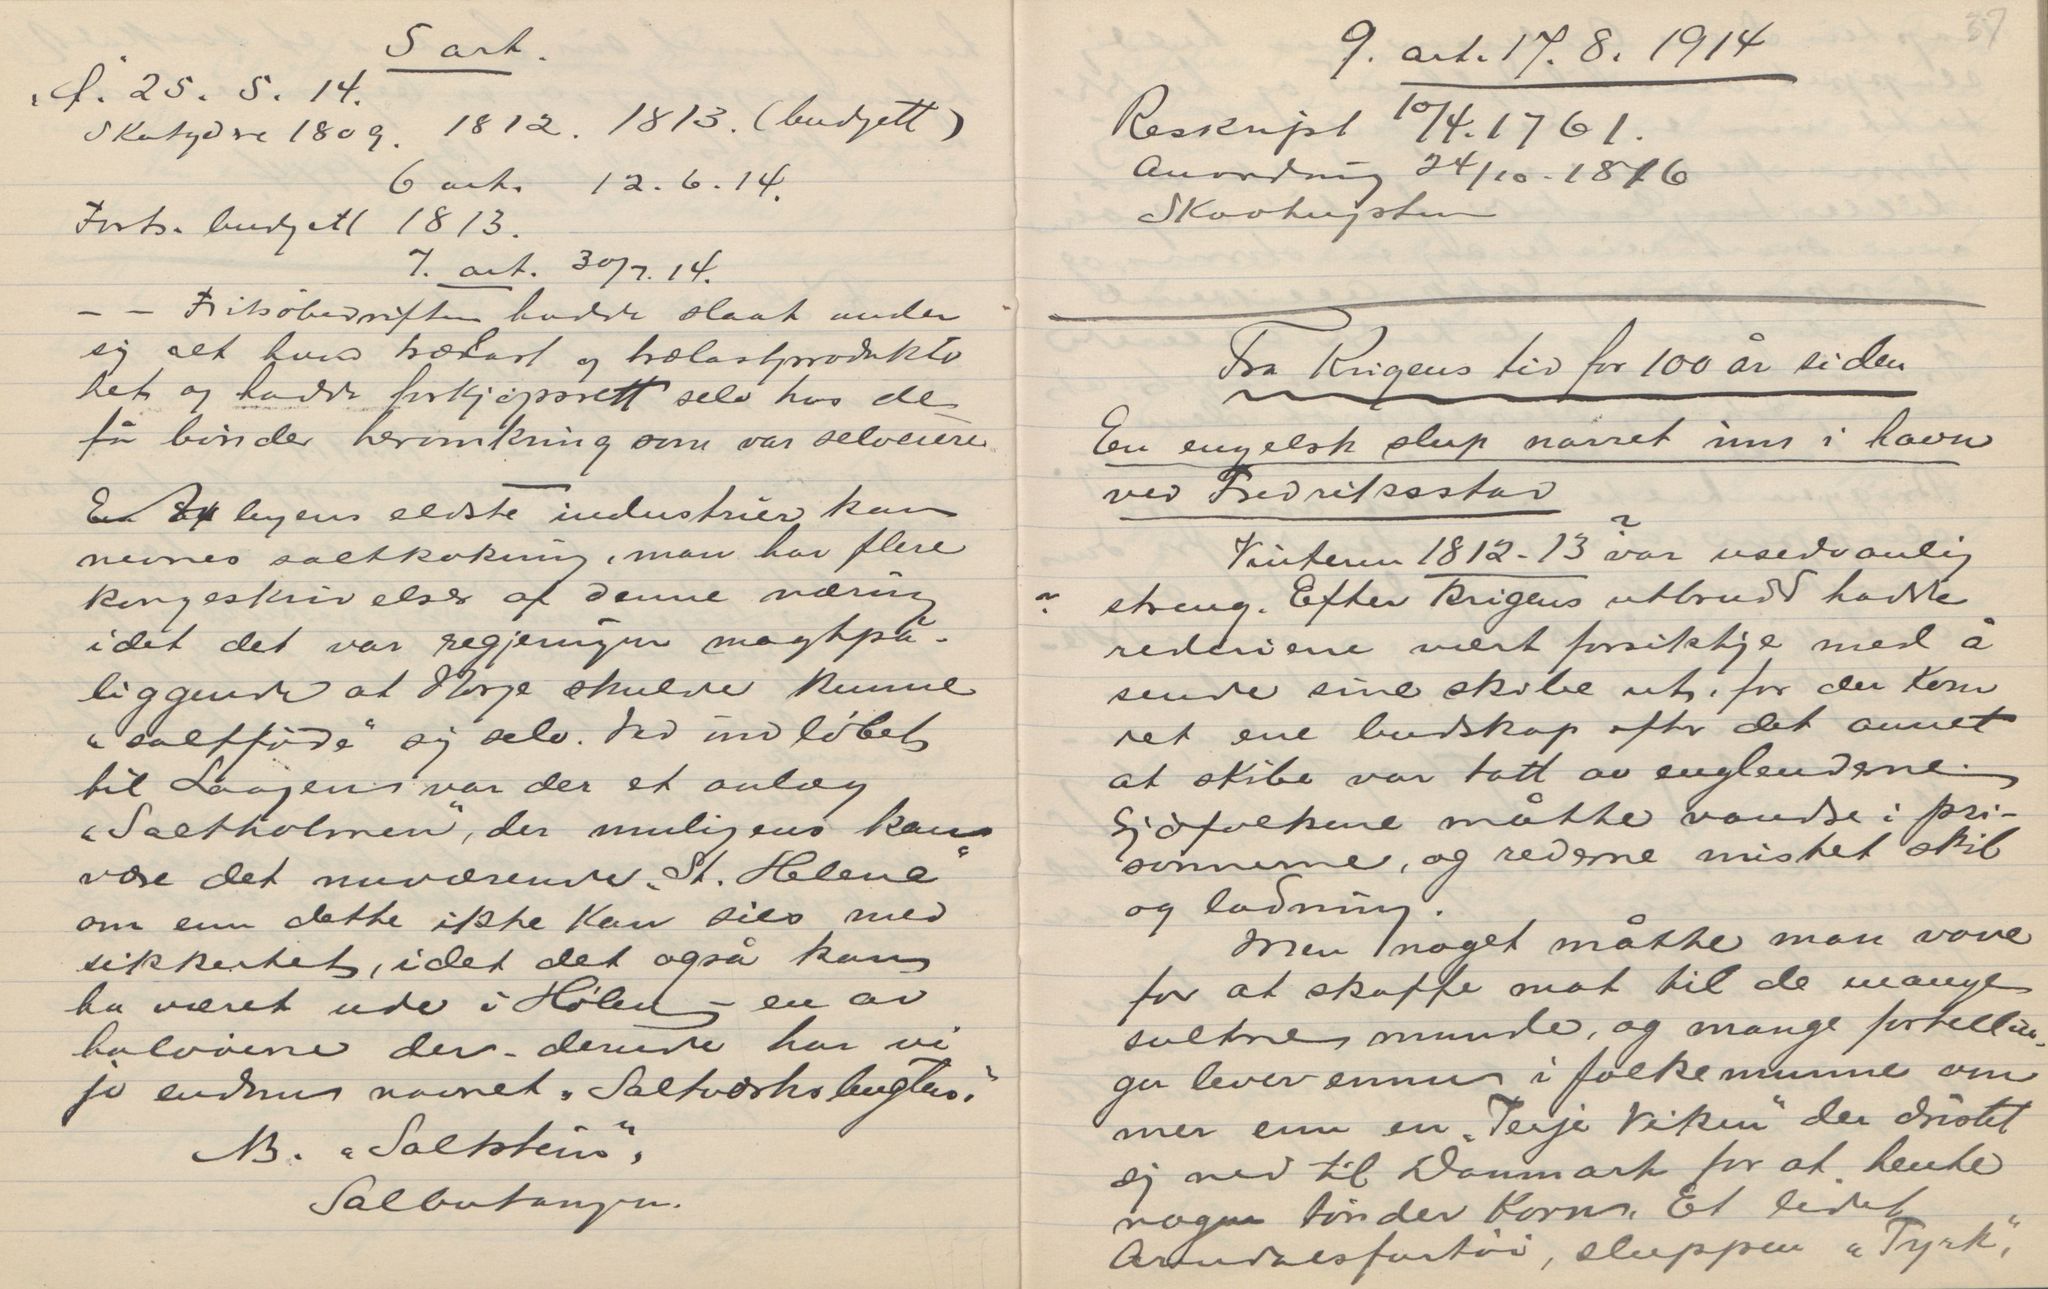 5 art.
f. 25. 5. 14.
Skatydere 1809. 1812. 1813. (budgett)
6 art. 12. 6. 14.
Forts. budgett 1813.
7. art. 30/7. 14.
– – Fritsöbedriften hadde slaat under
sig alt hvad trælast og trælastprodukto
het og hadde forkjøpsrett selv hos de
få bönder heromkring som var selveiere
En byens eldste industrier kan
nevnes saltkokning, man har flere
kongeskrivelser af denne næring
idet det var regjeringen magtpå-
liggende at Norge skulde kunne
"saltføde" sig selv. Ved indløbet
til Laagen var der et anlæg
"Saltholmen", der muligens kan
være det nuværende "St. Helene"
om enn dette ikke kan sies med
sikkerhet, idet det også kan
ha været ude i Hølen – en av
halvöene der - derude har vi
jo endnu navnet "Saltværksbugten."
NB. "Saltstein",
Salbutangen.
37
9. art. 17. 8. 1914
Reskript 10/4. 1761.
Anordning 24/10 - 1816
Skovhugsten
Fra Krigens tid for 100 år siden
En engelsk slup narret inn i havn
ved Fredriksstad
Vinteren 1812-13 ? var usedvanlig
? streng. Efter Krigens utbrudd hadde
rederiene vært forsiktige med å
sende sine skibe ut, for der kom
det ene budskap efter det annet
at skibe var tatt av englenderne.
Sjöfolkene måtte vandre i pri-
sonnerne, og rederne mistet skib
og ladning.
Men noget måtte man vove
for at skaffe mat til de mange
sultne munde, og mange fortellin-
ger lever ennu i folkemunne om
mer enn en "Terje Viken" der dristet
sig ned til Danmark for at hente
nogen tönder korn. Et lidet
Arendalsfartöi, sluppen "Tyrk",